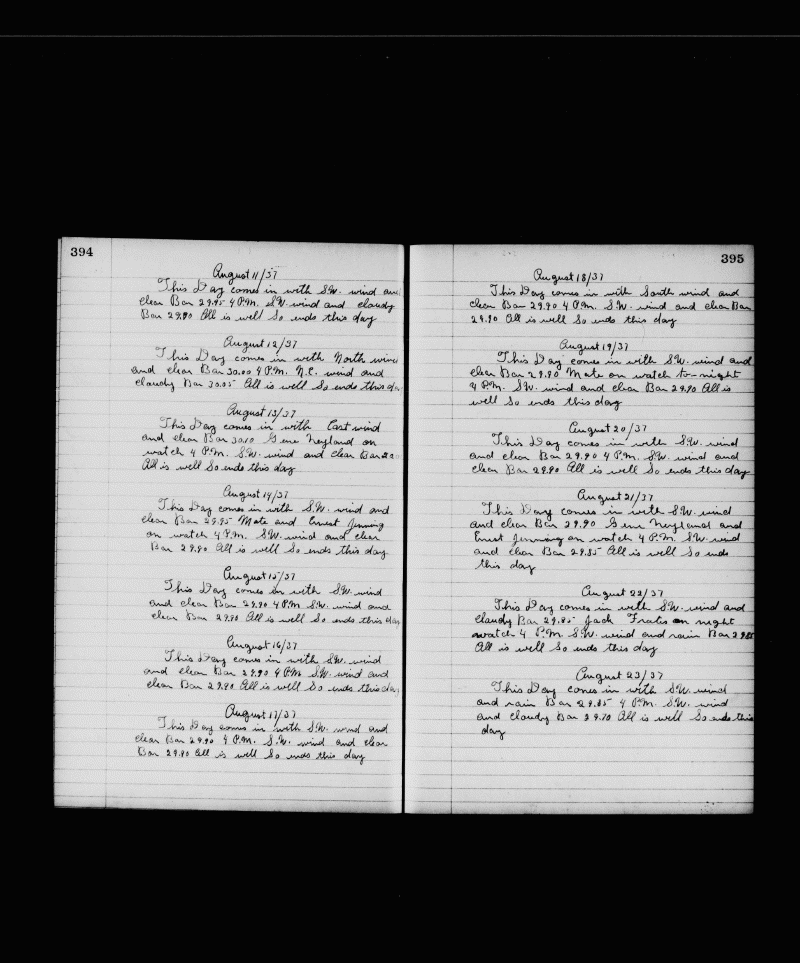 394
August 11/37
This Day comes in with S.W. wind and
clear Bar 29.95 4 P.M. S.W. wind and cloudy
Bar 29.90 All is well So ends this day
August 12/37
This Day comes in with North wind
and clear Bar 30.00 4 P.M. N.E. wind and
claudy Bar 30.05 All is well So ends this da
August 13/37
This Day comes in with East wind
and clear Bar 30.10 Gene Neyland on
watch 4 P.M. S.W. wind and clear Bar
All is well So ends this day
August 14/37
This Day comes in with S.W. wind and
clear Bar 29.95 Mate and Ernest Jenning
on watch 4 P.M. S.W. wind and clear
Bar 29.90 All is well So ends this day
August 15/37
This Day comes in with S.W. wind
and clear Bar 29.90 4 P.M. S.W. wind and
clear Bar 29.90 All is well So ends this day
August 16/37
This Day comes in with S.W. wind
and clear Bar 29.90 4 P.M. S.W. wind and
clear Bar 29.90 All is well So ends this day
August 17/37
This Day comes in with S.W. wind and
clear Bar 29.90 4 P.M. S.W. wind and clear
Bar 29.90 All is well So ends this day
395
August 18/37
This Day comes in with South wind and
clear Bar 29.90 4 P.M. S.W. wind and clear Bar
29.90 All is well So ends this day
August 19/37
This Day comes in with S.W. wind and
clear Bar 29.90 Mate on watch to-night
4 P.M. S.W. wind and clear Bar 29.90 All is
well So ends this day
August 20/37
This Day comes in with S.W. wind
and clear Bar 29.90 4 P.M. S.W. wind and
clear Bar 29.90 All is well So ends this day
August 21/37
This Day comes in with S.W. wind
and clear Bar 29.90 Gene Neyland and
Ernest Jenning on watch 4 P.M. S.W. wind
and clear Bar 29.85 All is well So ends
this day
August 22/37
This Day comes in with S.W. wind and
claudy Bar 29.85 Jack Fratus on night
watch 4 P.M. S.W. wind and rain Bar 29.85
All is well So ends this day
August 23/37
This Day comes in with S.W. wind
and rain Bar 29.85 4 P.M. S.W. wind
and cloudy Bar 29.80 All is well So ends this
day